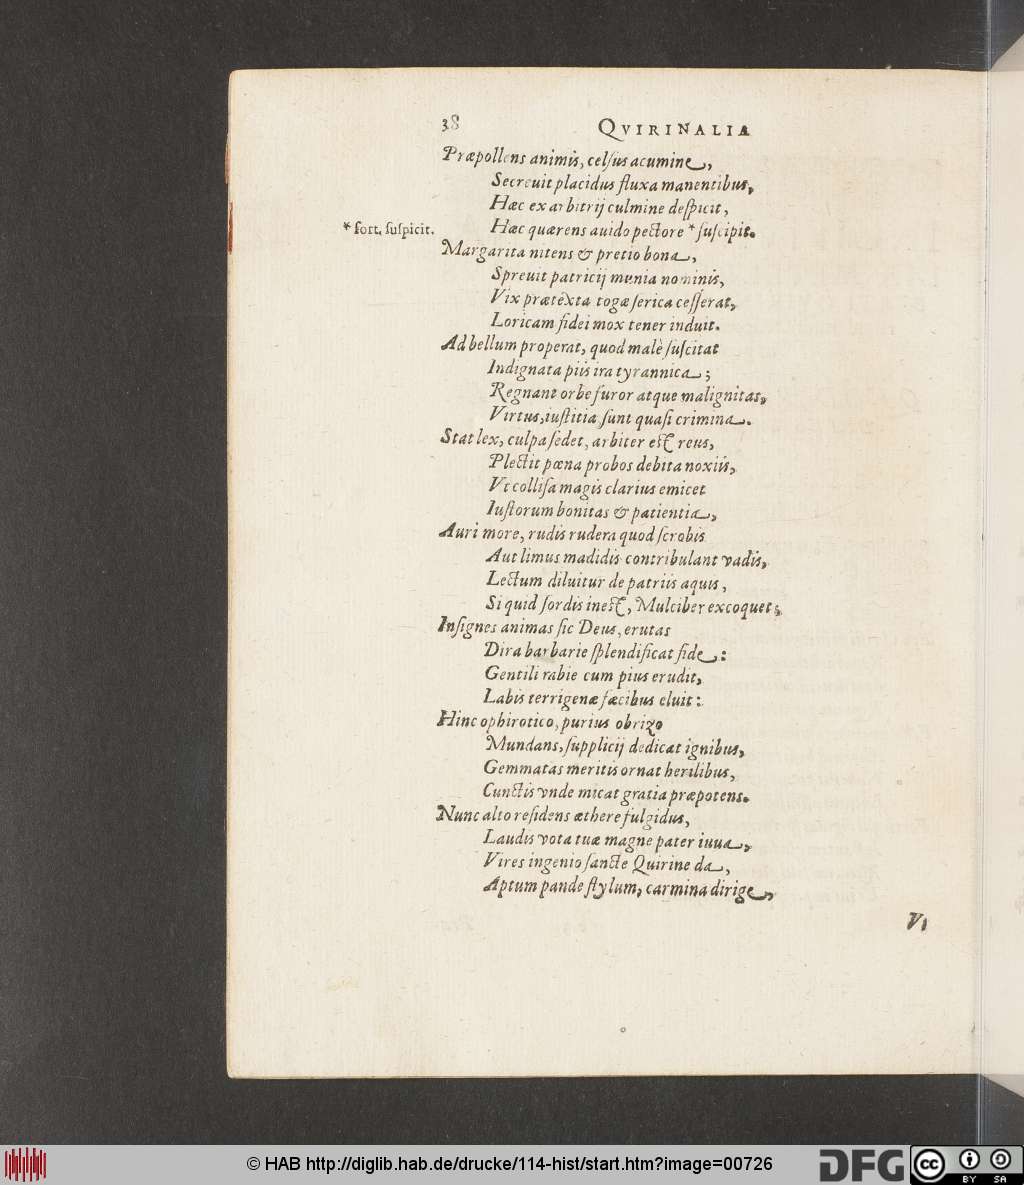 38 QVIRINALIA
Præpollens animis, celsus acumine,
Secreuit placidus fluxa manentibus,
Hæc ex arbitrij culmine despicit,
* fort. suspicit. Hæc quærens auido pectore * suscipit.
Margarita nitens & pretio bona,
Spreuit patricij munia nominis,
Vix prætexta togæ serica cesserat,
Loricam fidei mox tener induit.
Ad bellum properat, quod malè suscitat
Indignata piis ira tyrannica;
Regnant orbe furor atque malignitas,
Virtus, iustitia sunt quasi crimina.
Stat lex, culpa sedet, arbiter est reus,
Plectit pœna probos debita noxiis,
Vt collisa magis clarius emicet
Iustorum bonitas & patientia,
Auri more, rudis rudera quod scrobis
Aut limus madidis contribulant vadis,
Lectum diluitur de patriis aquis,
Si quid sordis inest, Mulciber excoquet;
Insignes animas sic Deus, erutas
Dira barbarie splendificat fide:
Gentili rabie cum pius erudit,
Labis terrigenæ fæcibus eluit:
Hinc ophirotico, purius obrizo
Mundans, supplicij dedicat ignibus,
Gemmatas meritis ornat herilibus,
Cunctis vnde micat gratia præpotens.
Nunc alto residens æthere fulgidus,
Laudis vota tuæ magne pater iuua,
Vires ingenio sancte Quirine da,
Aptum pande stylum, carmina dirige,
Vi
© HAB http://diglib.hab.de/drucke/114-hist/start.htm?image=00726
DFG
cc
BY SA